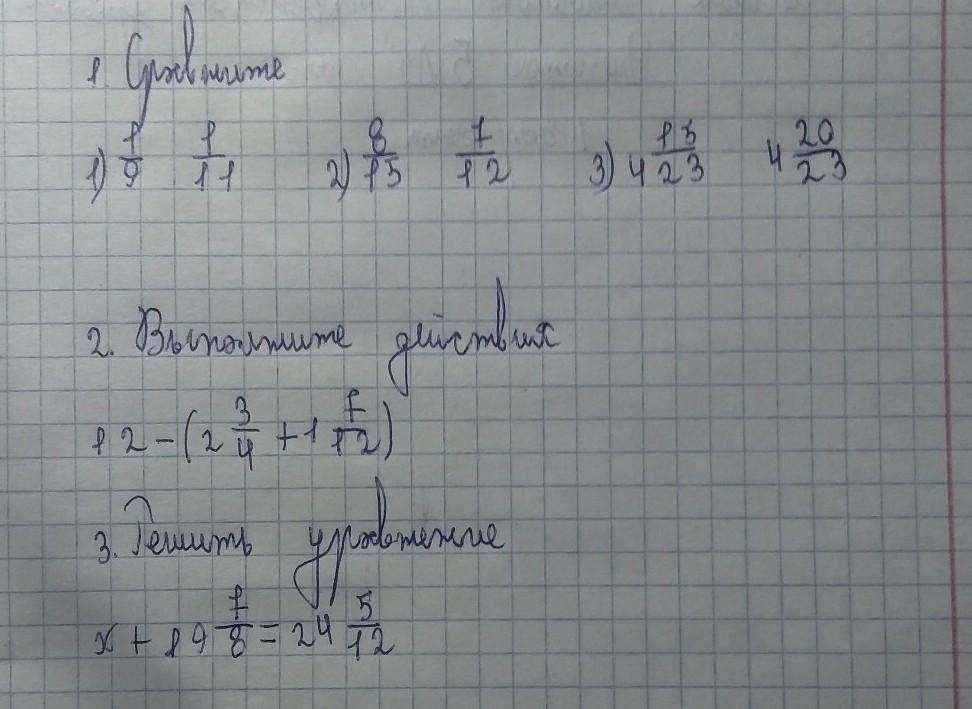 1. Сравните
1) 1/9 1/11 2) 8/15 7/12 3) 4 15/23 4 20/23
2. Выполните действия
12 - (2 3/4 + 1 7/12)
3. Решить уравнение
x + 19 7/8 = 24 5/12